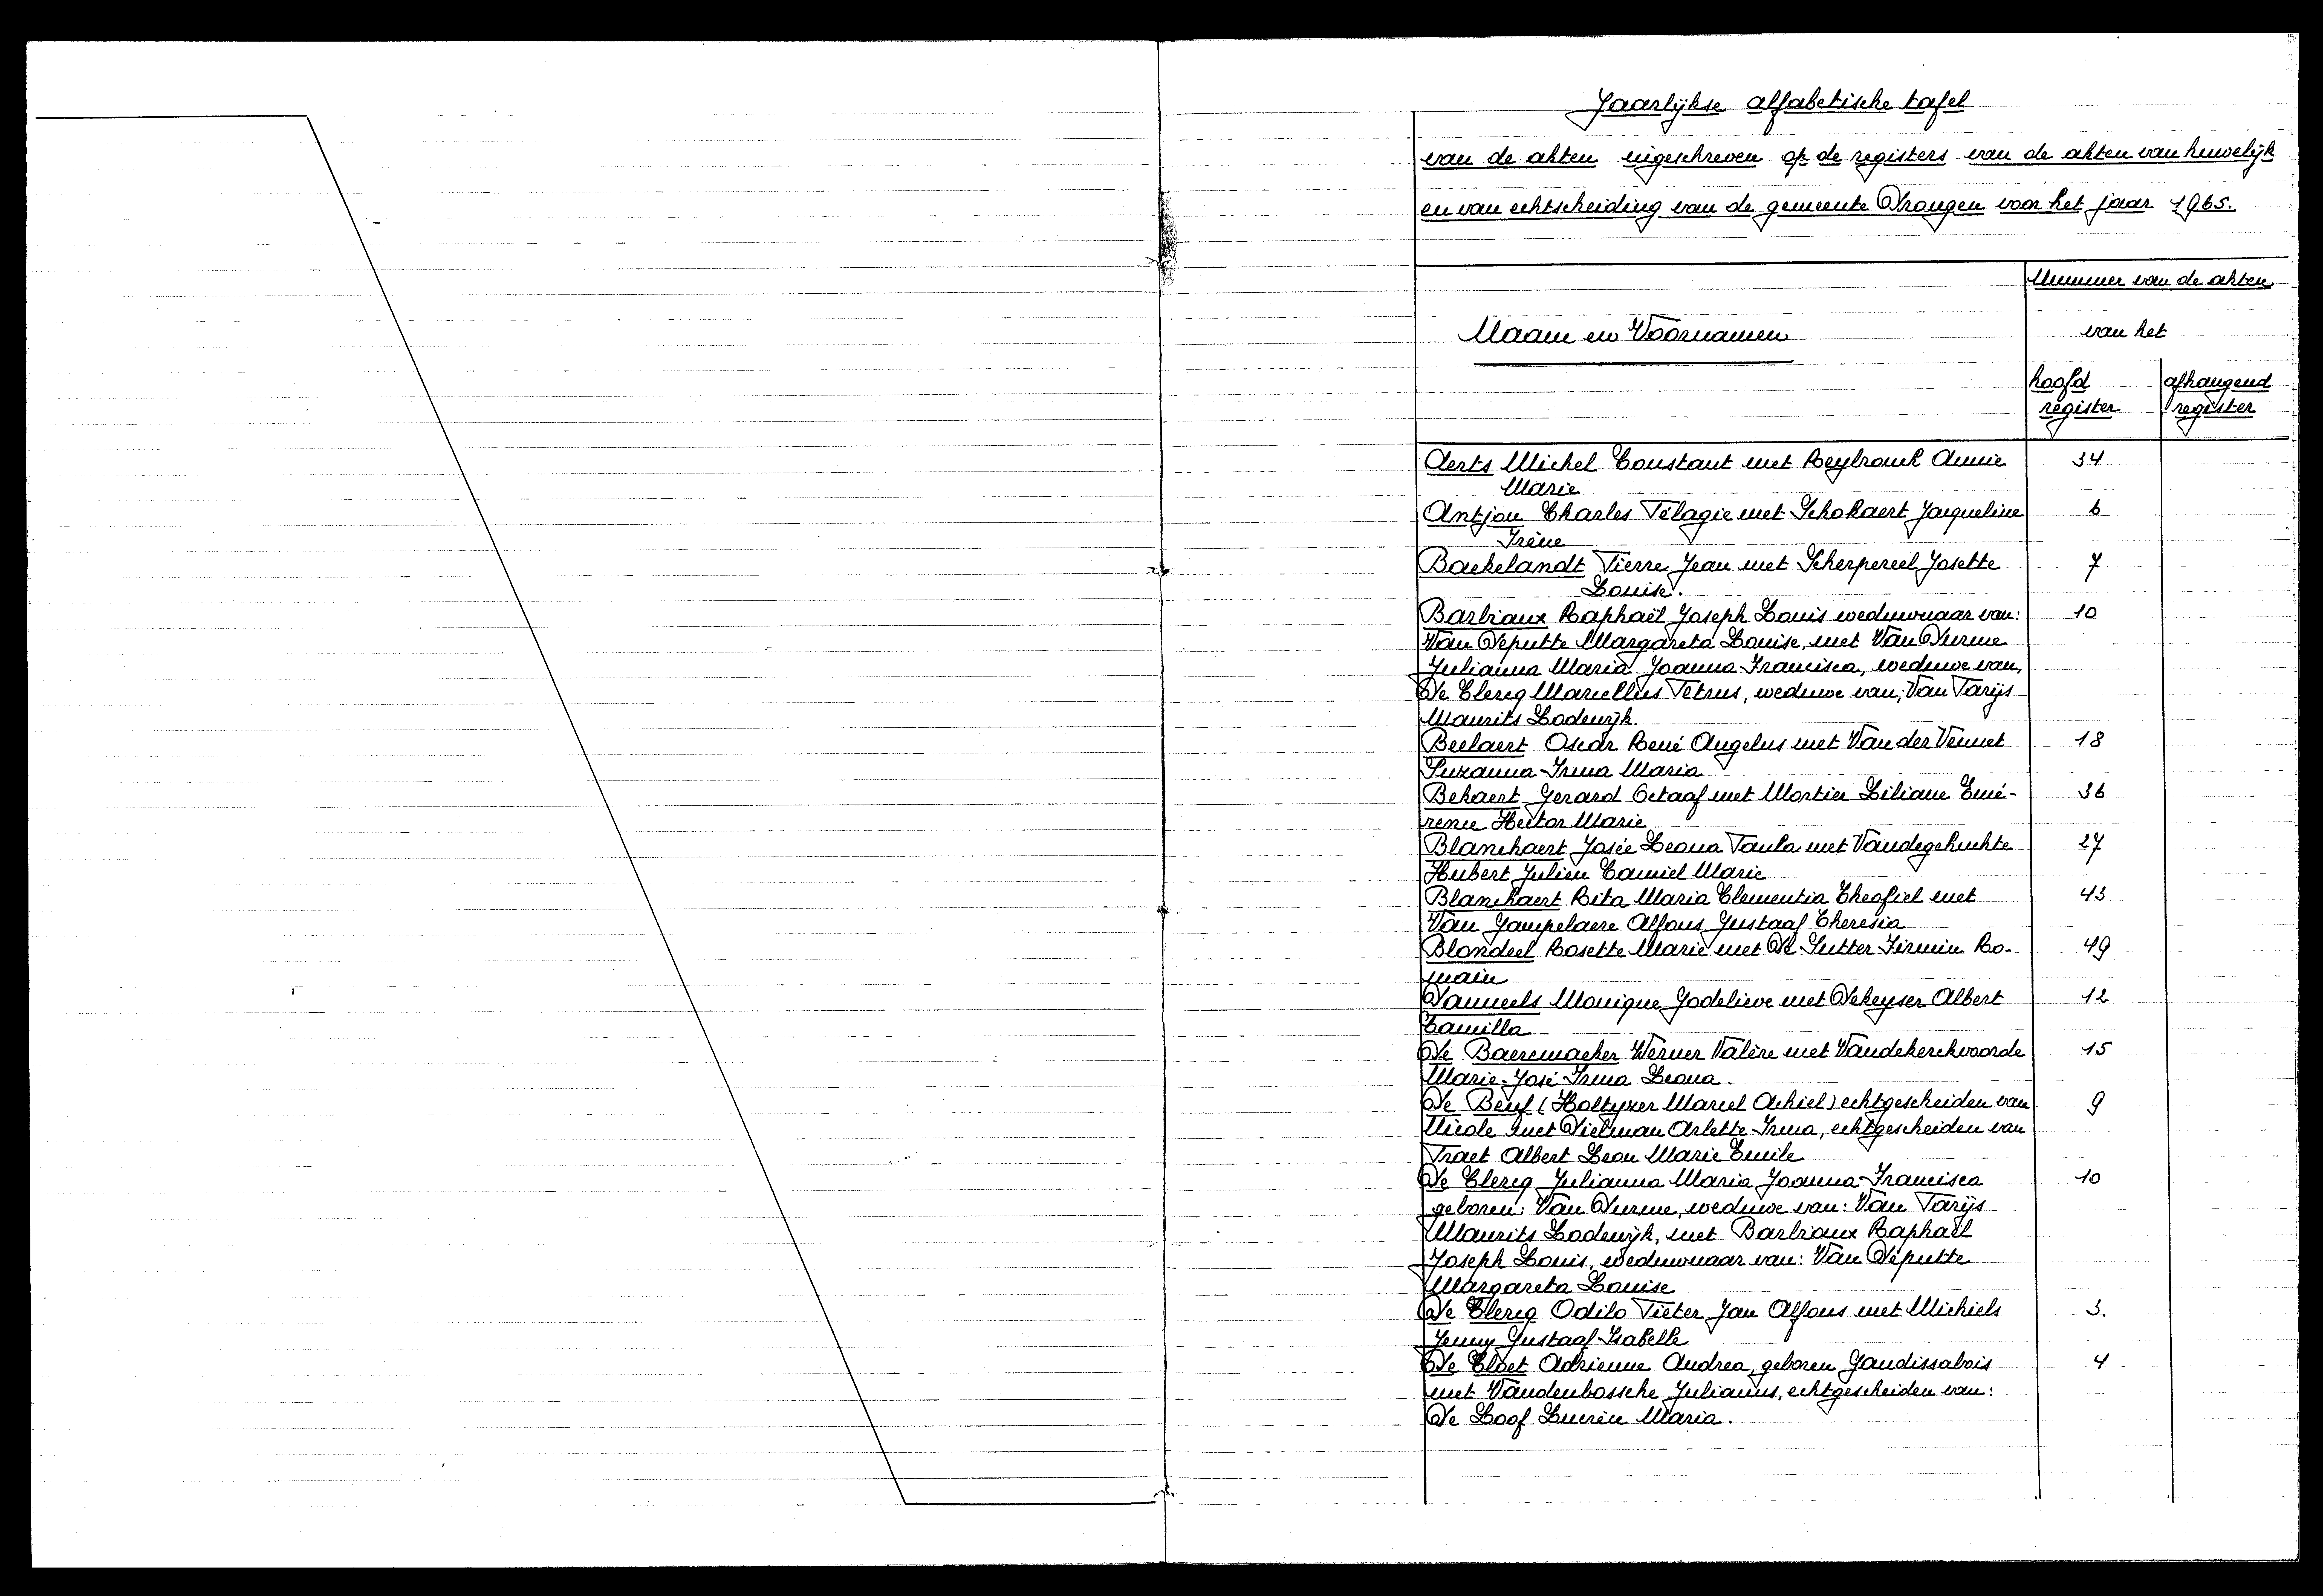 Jaarlijkse alfabetische tafel
van de akten ingeschreven op de registers van de akten van huwelijk
en van echtscheiding van de gemeente Drongen voor het jaar 1965.
Nummer van de akten
Naam en Voornamen van het
hoofd afhangend
register register
Aerts Michel Constant met Reybrouck Annie 34
Marie
Antjon Charles Pélagie met Schokaert Jacqueline 6
Irène
Backelandt Pierre Jean met Scherpereel Josette 7
Louise.
Barbiaux Raphaël Joseph Louis weduwnaar van: 10
Van Deputte Margareta Louise, met Van Durme
Julianna Maria Joanna-Francisca, weduwe van,
De Clercq Marcellus Petrus, weduwe van; Van Parijs
Maurits Lodewijk.
Beelaert Oscar René Angelus met Van der Vennet 18
Suzanna-Irma Maria
Bekaert Gerard Octaaf met Mortier Liliane Emé- 36
rence Hector Marie
Blanckaert Josée Leona Paula met Vandegehuchte 27
Hubert Julien Camiel Marie
Blanckaert Rita Maria Clementia Theofiel met 43
Van Gampelaere Alfons Gustaaf Theresia
Blondeel Rosette Marie met De Sutter Firmin Ro- 49
main
Danneels Monique Godelieve met Dekeyser Albert 12
Camilla
De Baeremaeker Werner Valère met Vandekerckvoorde 15
Marie-José Irma Leona.
De Beuf (Holtyzer Marcel Achiel) echtgescheiden van 9
Nicole met Dielman Arlette-Irma, echtgescheiden van
Praet Albert Leon Marie Emile
De Clercq Julianna Maria Joanna-Francisca 10
geboren: Van Durme, weduwe van: Van Parijs
Maurits Lodewijk, met Barbiaux Raphaël
Joseph Louis, weduwnaar van: Van Deputte
Margareta Louise
De Clercq Odilo Pieter Jan Alfons met Michiels 3.
Jenny Gustaaf-Isabelle
De Cloet Adrienne Andrea, geboren Gaudissabois 4
met Vandenbossche Julianus, echtgescheiden van:
De Loof Lucrèce Maria.